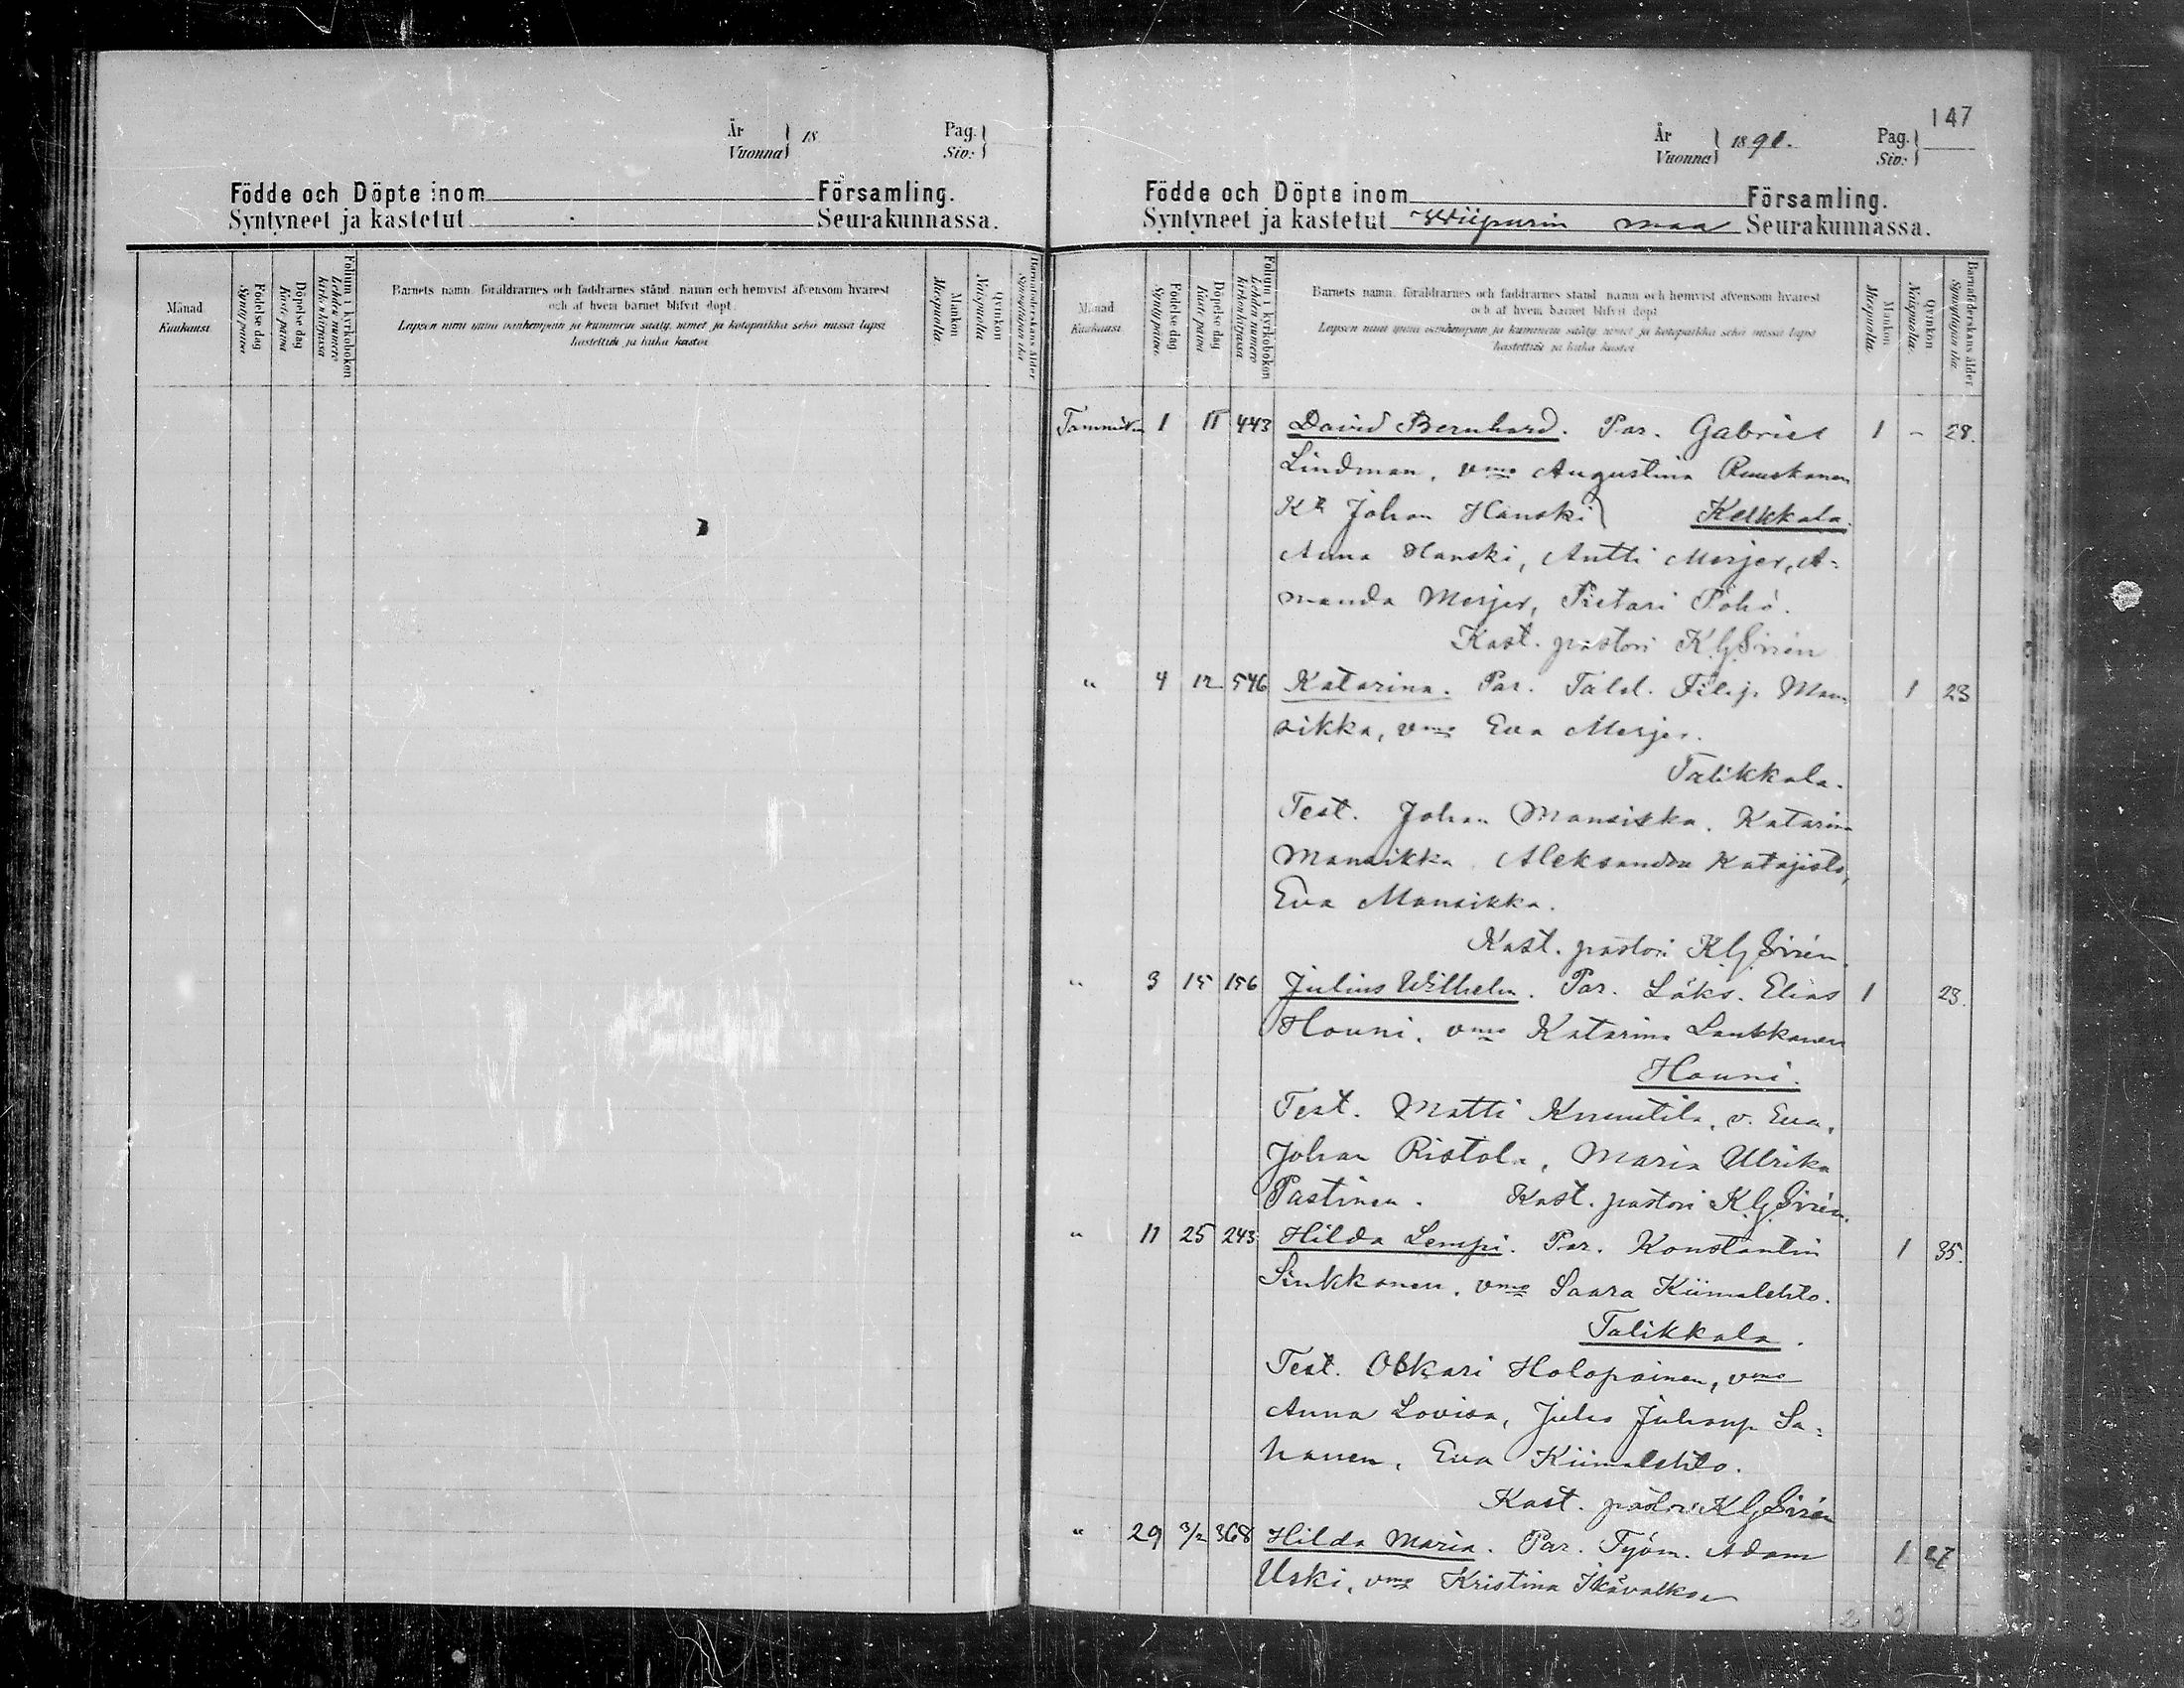 År
Vuonna
18
Pag.
Siv:
Födde och Döpte inom Församling.
Syntyneet ja kastetut Seurakunnassa.
Månad
Kuukausi
Födelse dag
Synty päivä
Döpelse dag
Kaste päivä
Folium i kyrkoboken
Lehden numero
kirkonkirjassa
Barnets namn, föräldrarnes och faddrarnes stånd, namn och hemvist äfvensom hvarest
och af hvem barnet blifvit döpt.
Lapsen nimi, vanhempain ja kummein sääty, nimet ja kotopaikka sekä missä lapsi
kastettiin ja kuka kastoi
Mankön
Miespuolia
Qvinkön
Naispuolia
Barnaföderskans ålder
Synnyttäjän ikä
147
År
Vuonna
1891.
Pag.
Siv:
Födde och Döpte inom Församling.
Syntyneet ja kastetut Wiipurin maa Seurakunnassa.
Månad
Kuukausi
Födelse dag
Synty päivä
Döpelse dag
Kaste päivä
Folium i kyrkoboken
Lehden numero
kirkonkirjassa
Barnets namn, föräldrarnes och faddrarnes stånd, namn och hemvist äfvensom hvarest
och af hvem barnet blifvit döpt
Lapsen nimi, vanhempain ja kummein sääty, nimet ja kotopaikka sekä missä lapsi
kastettiin ja kuka kastoi
Mankön
Miespuolia
Qvinkön
Naispuolia
Barnaföderskans ålder
Synnyttäjän ikä
Tammik. 1 11 443 David Bernhard. Par. Gabriel 1 - 28.
Lindman, vmo Augustina Ruuskanen
Johan Hanski Kelkkala.
Anna Hanski, Antti Merjer, A=
manda Merjer, Pietari Pöhö.
Kast. pastori K.G. Sirén
" 4 12 546 Katarina. Par. Talol. Filip Man 1 23
sikka, vmo Eva Merjer.
Talikkala.
Test. Johan Mansikka. Katarina
Mansikka. Aleksandra Katajisto,
Eva Mansikka.
Kast. pastori K.G. Sirén.
" 3 15 156 Julius Wilhelm. Par. Läks. Elias 1 23.
Houni, vmo Katarina Laukkanen
Houni.
Test. Matti Knuutila, v. Eva,
Johan Ristola, Maria Ulrika
Pastinen. Kast. pastori K.G. Sirén.
" 11 25 243 Hilda Lempi. Par. Konstantin 1 35.
Sinkkonen, vmo Saara Kiimalehto.
Talikkala.
Test. Oskari Holopainen, vmo
Anna Lovisa, Juho Juhonp. Sa=
Eva Kiimalehto.
Kast. pastori K.G. Sirén
" 29 3/2 368 Hilda Maria. Par. Työm. Adam 1 27
Uski, vmo Kristina Ikävalko
2 3